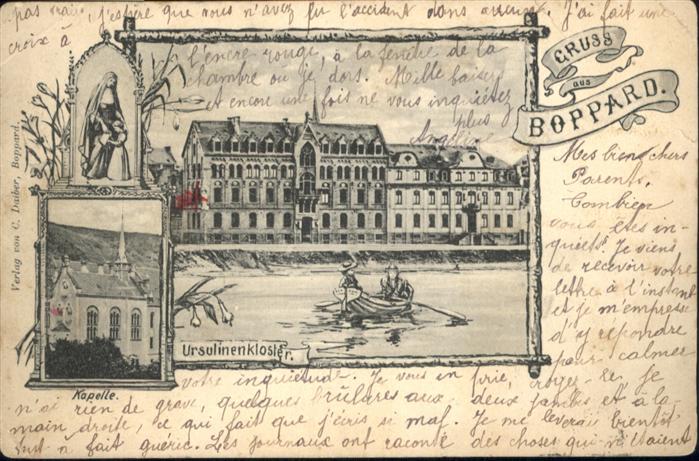 GRUSS
aus
BOPPARD.
Mes bien chers
Parents,
Combien
vous êtes in-
quiets! Je viens
de recevoir votre
lettre à l'instant
et je m'empresse
d'y répondre
pour calmer
votre inquiétude. Je vous en prie, croyez-le je
n'ai rien de grave, quelques brûlures aux deux jambes et à la
main droite, ce qui fait que j'écris si mal. Je me lèverai bientôt
tout à fait guérie. Les journaux ont raconté des choses qui n'étaient
pas vrai. J'espère que vous n'avez lu l'accident dans aucun. J'ai fait une
croix à
l'encre rouge, à la fenêtre de la
chambre où je dors. Mille baisers
et encore une fois ne vous inquiétez
plus
Ursulinenkloster.
Kapelle.
Verlag von C. Daiber, Boppard.